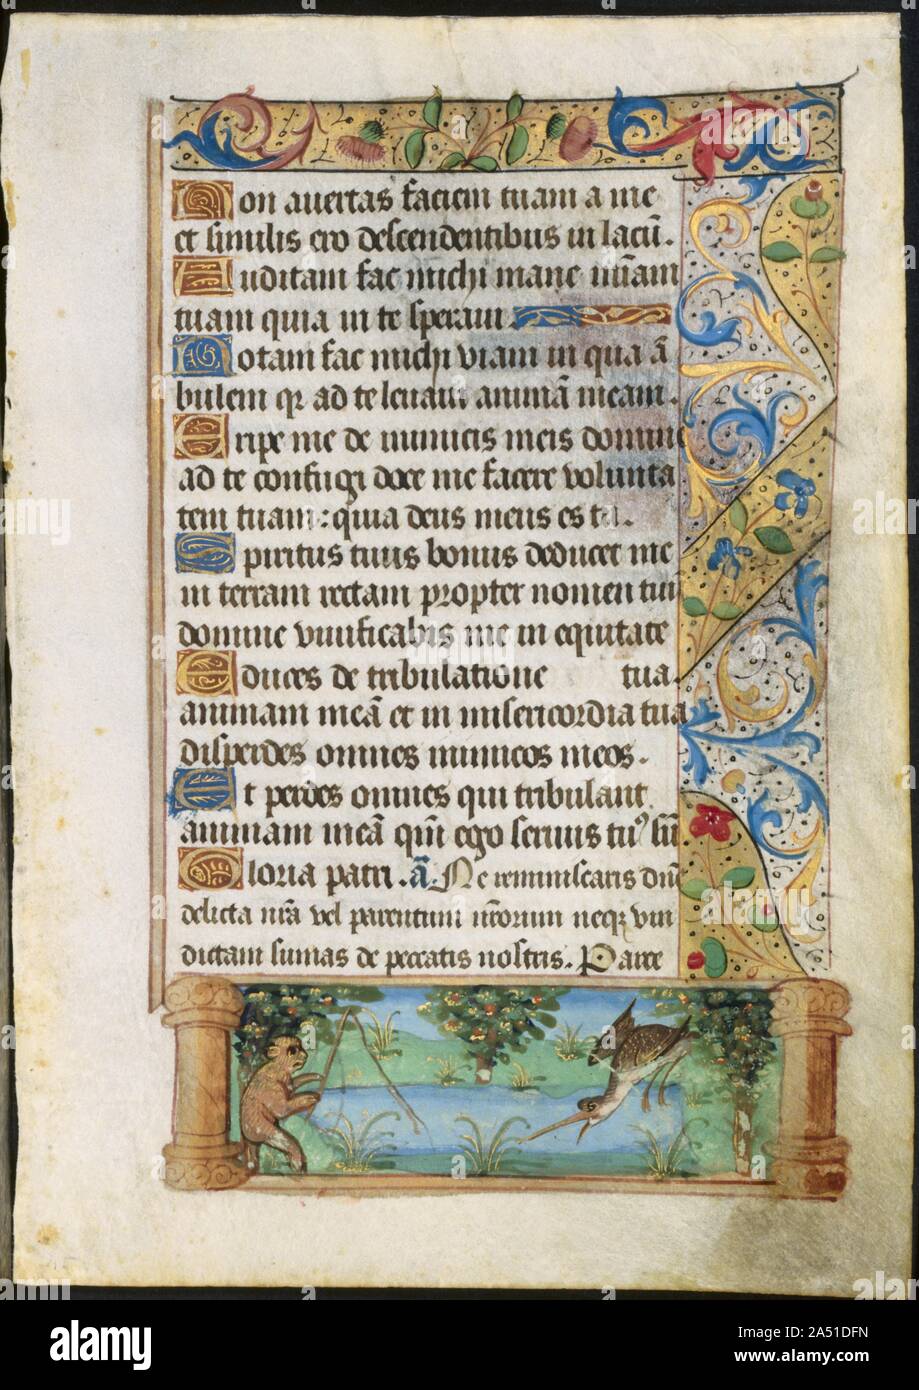 Non auertas faciem tuam a me
et similis ero descendentibus in lacū.
Auditam fac michi mane mīam
tuam quia in te speraui
Notam fac michi viam in qua ā
bulem qr ad te leuaui animā meam.
Eripe me de inimicis meis domine
ad te confugi doce me facere volunta
tem tuam: quia deus meus es tu.
Spiritus tuus bonus deducet me
in terram rectam propter nomen tuū
domine viuificabis me in equitate
Educes de tribulatione tua
animam meā et in misericordia tua
disperdes omnes inimicos meos.
Et perdes omnes qui tribulant
animam meā qm̄ ego seruus tuꝰ sū
Gloria patri. ā. Ne reminiscaris dn̄e
delicta nr̄a vel parentum nr̄orum neqr vin
dictam sumas de peccatis nostris. Parce
alamy
Image ID: 2A51DFN
www.alamy.com